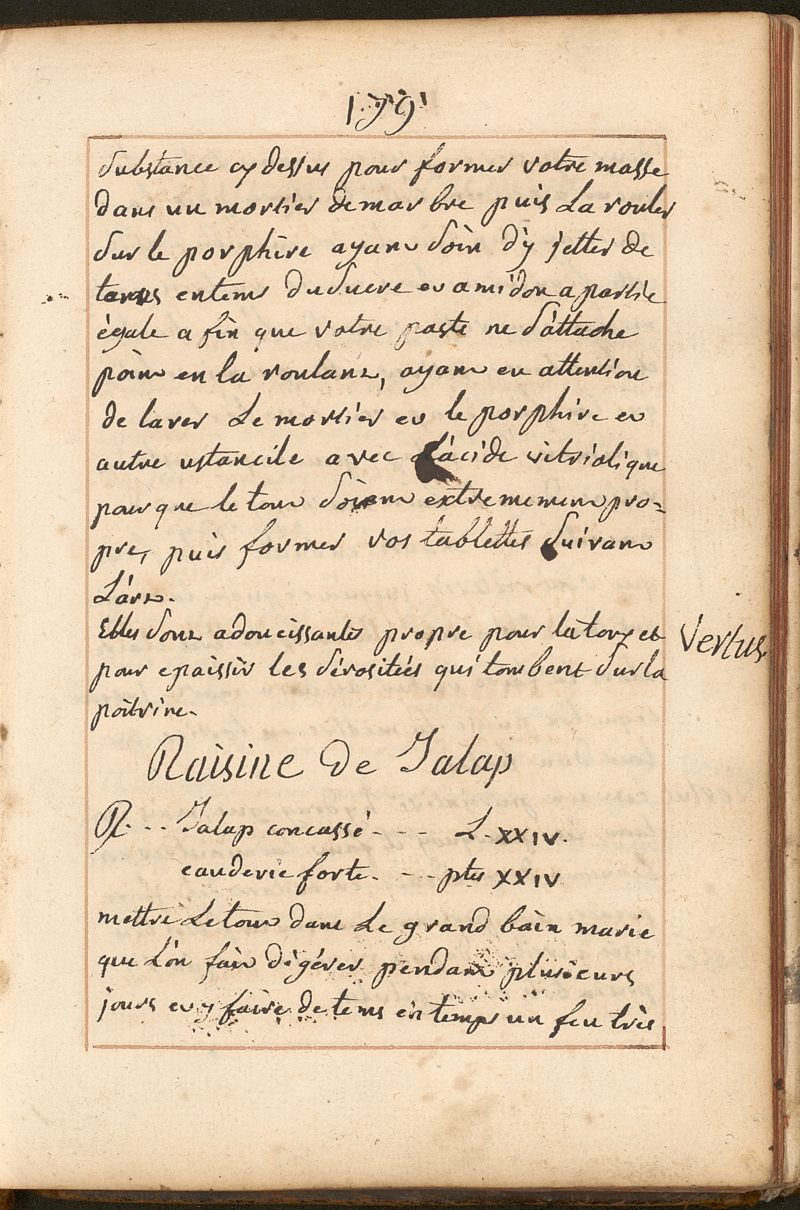 179
substance cy dessus pour former votre masse
dans un mortier de marbre puis La rouler
sur le porphire ayant soin d'y jetter de
tems entems du sucre et amidon a partie
égale a fin que votre paste ne s'áttache
point en la roulant, ayant eu attention
de laver Le mortier et le porphire et
autre ustancile avec L'ácide vitriolique
pour que le tout soient extrememement pro=
pre, puis former vos tablettes suivant
L'árt.
Elles sont adoucissantes propre pour la toux et
pour epaissir les sérositées qui tombent sur la
poitrine.
Vertus
Raisine de Jalap
R. . . Jalap concassé - - - L. XXIV.
eaudevie forte. - - ptes XXIV
mettre Letout dans Le grand bain marie
que L'ón fait digérer pendant plusieurs
jours et y faire de tems en temps un feu très